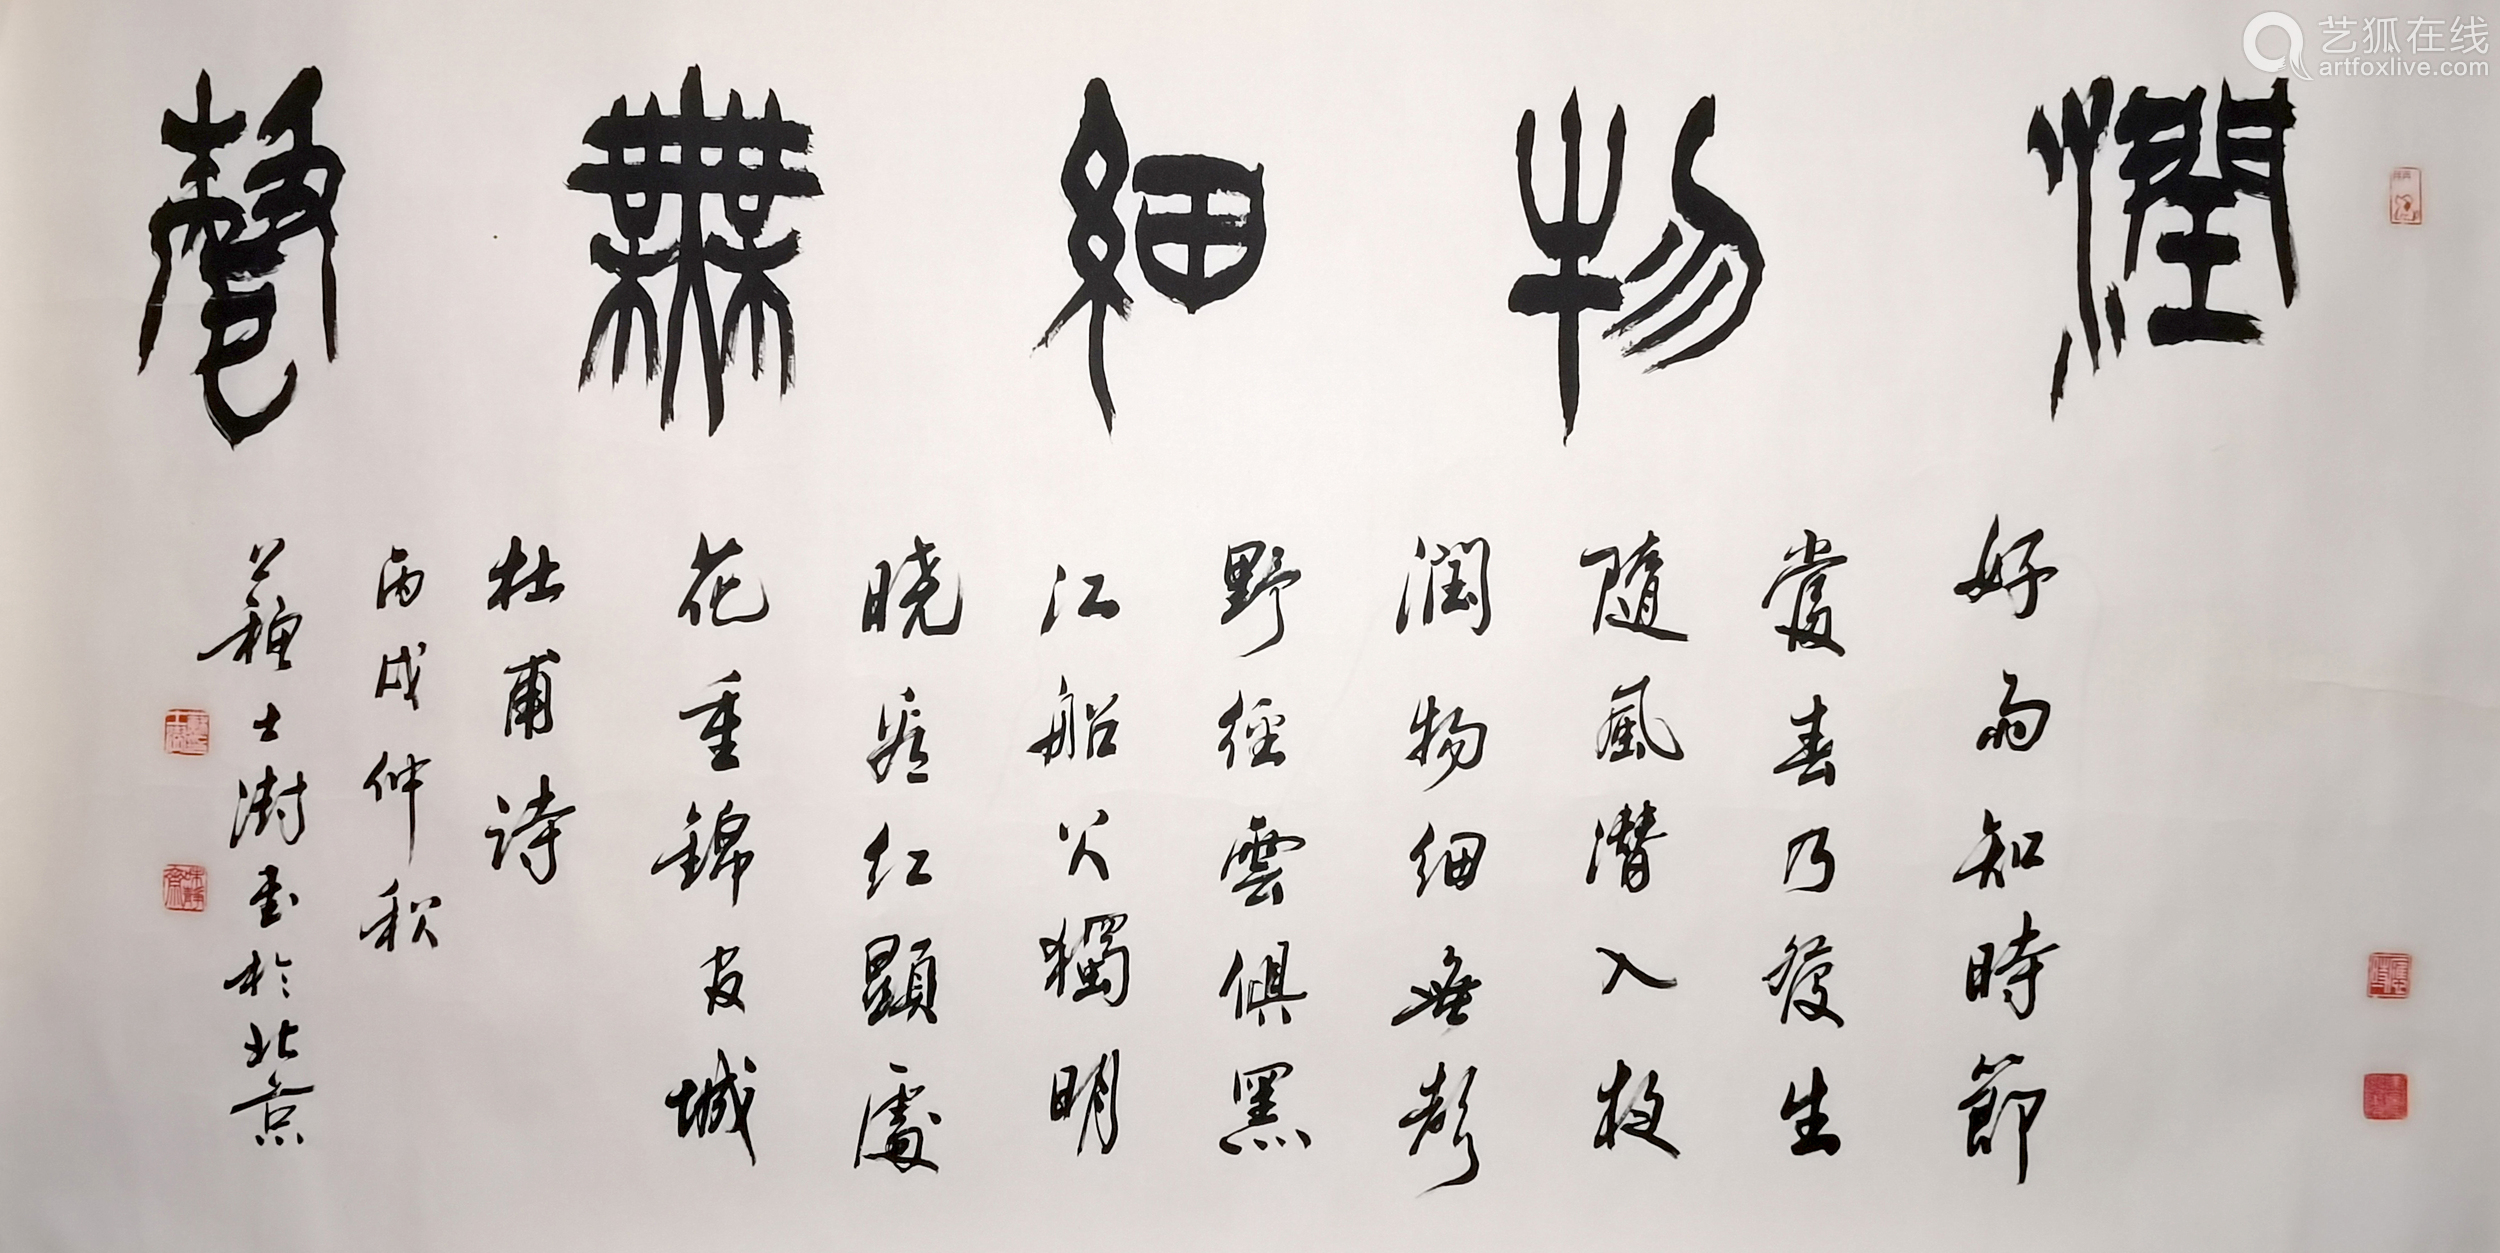 潤物細無聲
好雨知時節
當春乃發生
隨風潛入夜
潤物細無聲
野徑雲俱黑
江船火獨明
曉看紅顯處
花重錦官城
杜甫詩
丙戌仲秋
蘇士澍書於北京
艺狐在线
artfoxlive.com